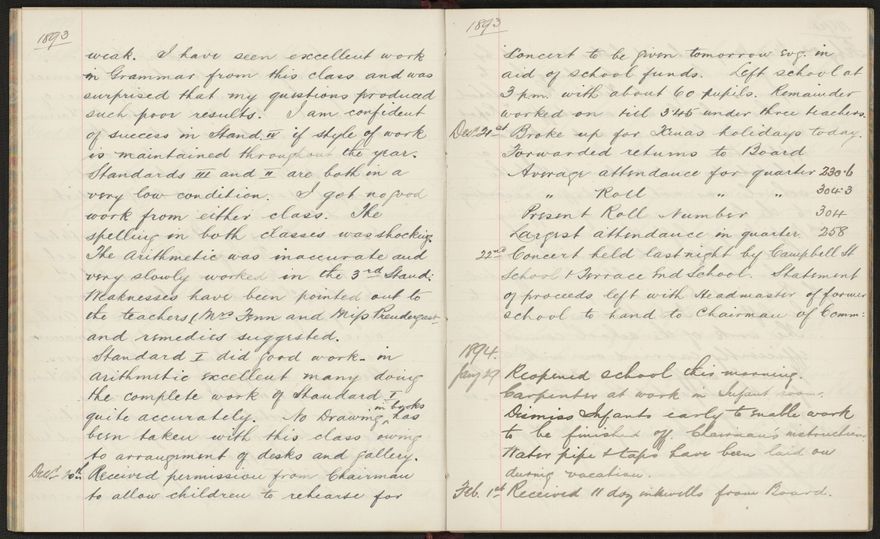 1893
weak. I have seen excellent work
in Grammar from this class and was
surprised that my questions produced
such poor results. I am confident
of success in Stand. IV if style of work
is maintained throughout the year.
Standards III and II are both in a
very low condition. I got no good
work from either class. The
spelling in both classes was shocking.
The arithmetic was inaccurate and
very slowly worked in the 3rd Stand:
Weaknesses have been pointed out to
the teachers (Mrs Fenn and Miss Prendergast
and remedies suggested.
Standard I did good work in
arithmetic excellent many doing
the complete work of Standard I
quite accurately. No Drawing in books has
been taken with this class owing
to arrangement of desks and gallery.
Decr 20th Received permission from Chairman
to allow children to rehearse for
1893
Concert to be given tomorrow evg. in
aid of school funds. Left school at
3 p.m. with about 60 pupils. Remainder
worked on till 3.45 under three teachers.
Dec. 21st Broke up for Xmas holidays today.
Forwarded returns to Board
Average attendance for quarter 230.6
" Roll " " 304.3
Present Roll Number 304
Largest attendance in quarter 258
22nd Concert held last night by Campbell St
School & Terrace End School. Statement
of proceeds left with Headmaster of former
school to hand to Chairman of Comm:
1894.
Jany 29 Reopened school this morning.
Carpenter at work in Infant room.
Dismiss Infants early to enable work
to be finished off Chairman's instructions.
Water pipe & taps have been laid on
during vacation.
Feb. 1st Received 11 doz inkwells from Board.